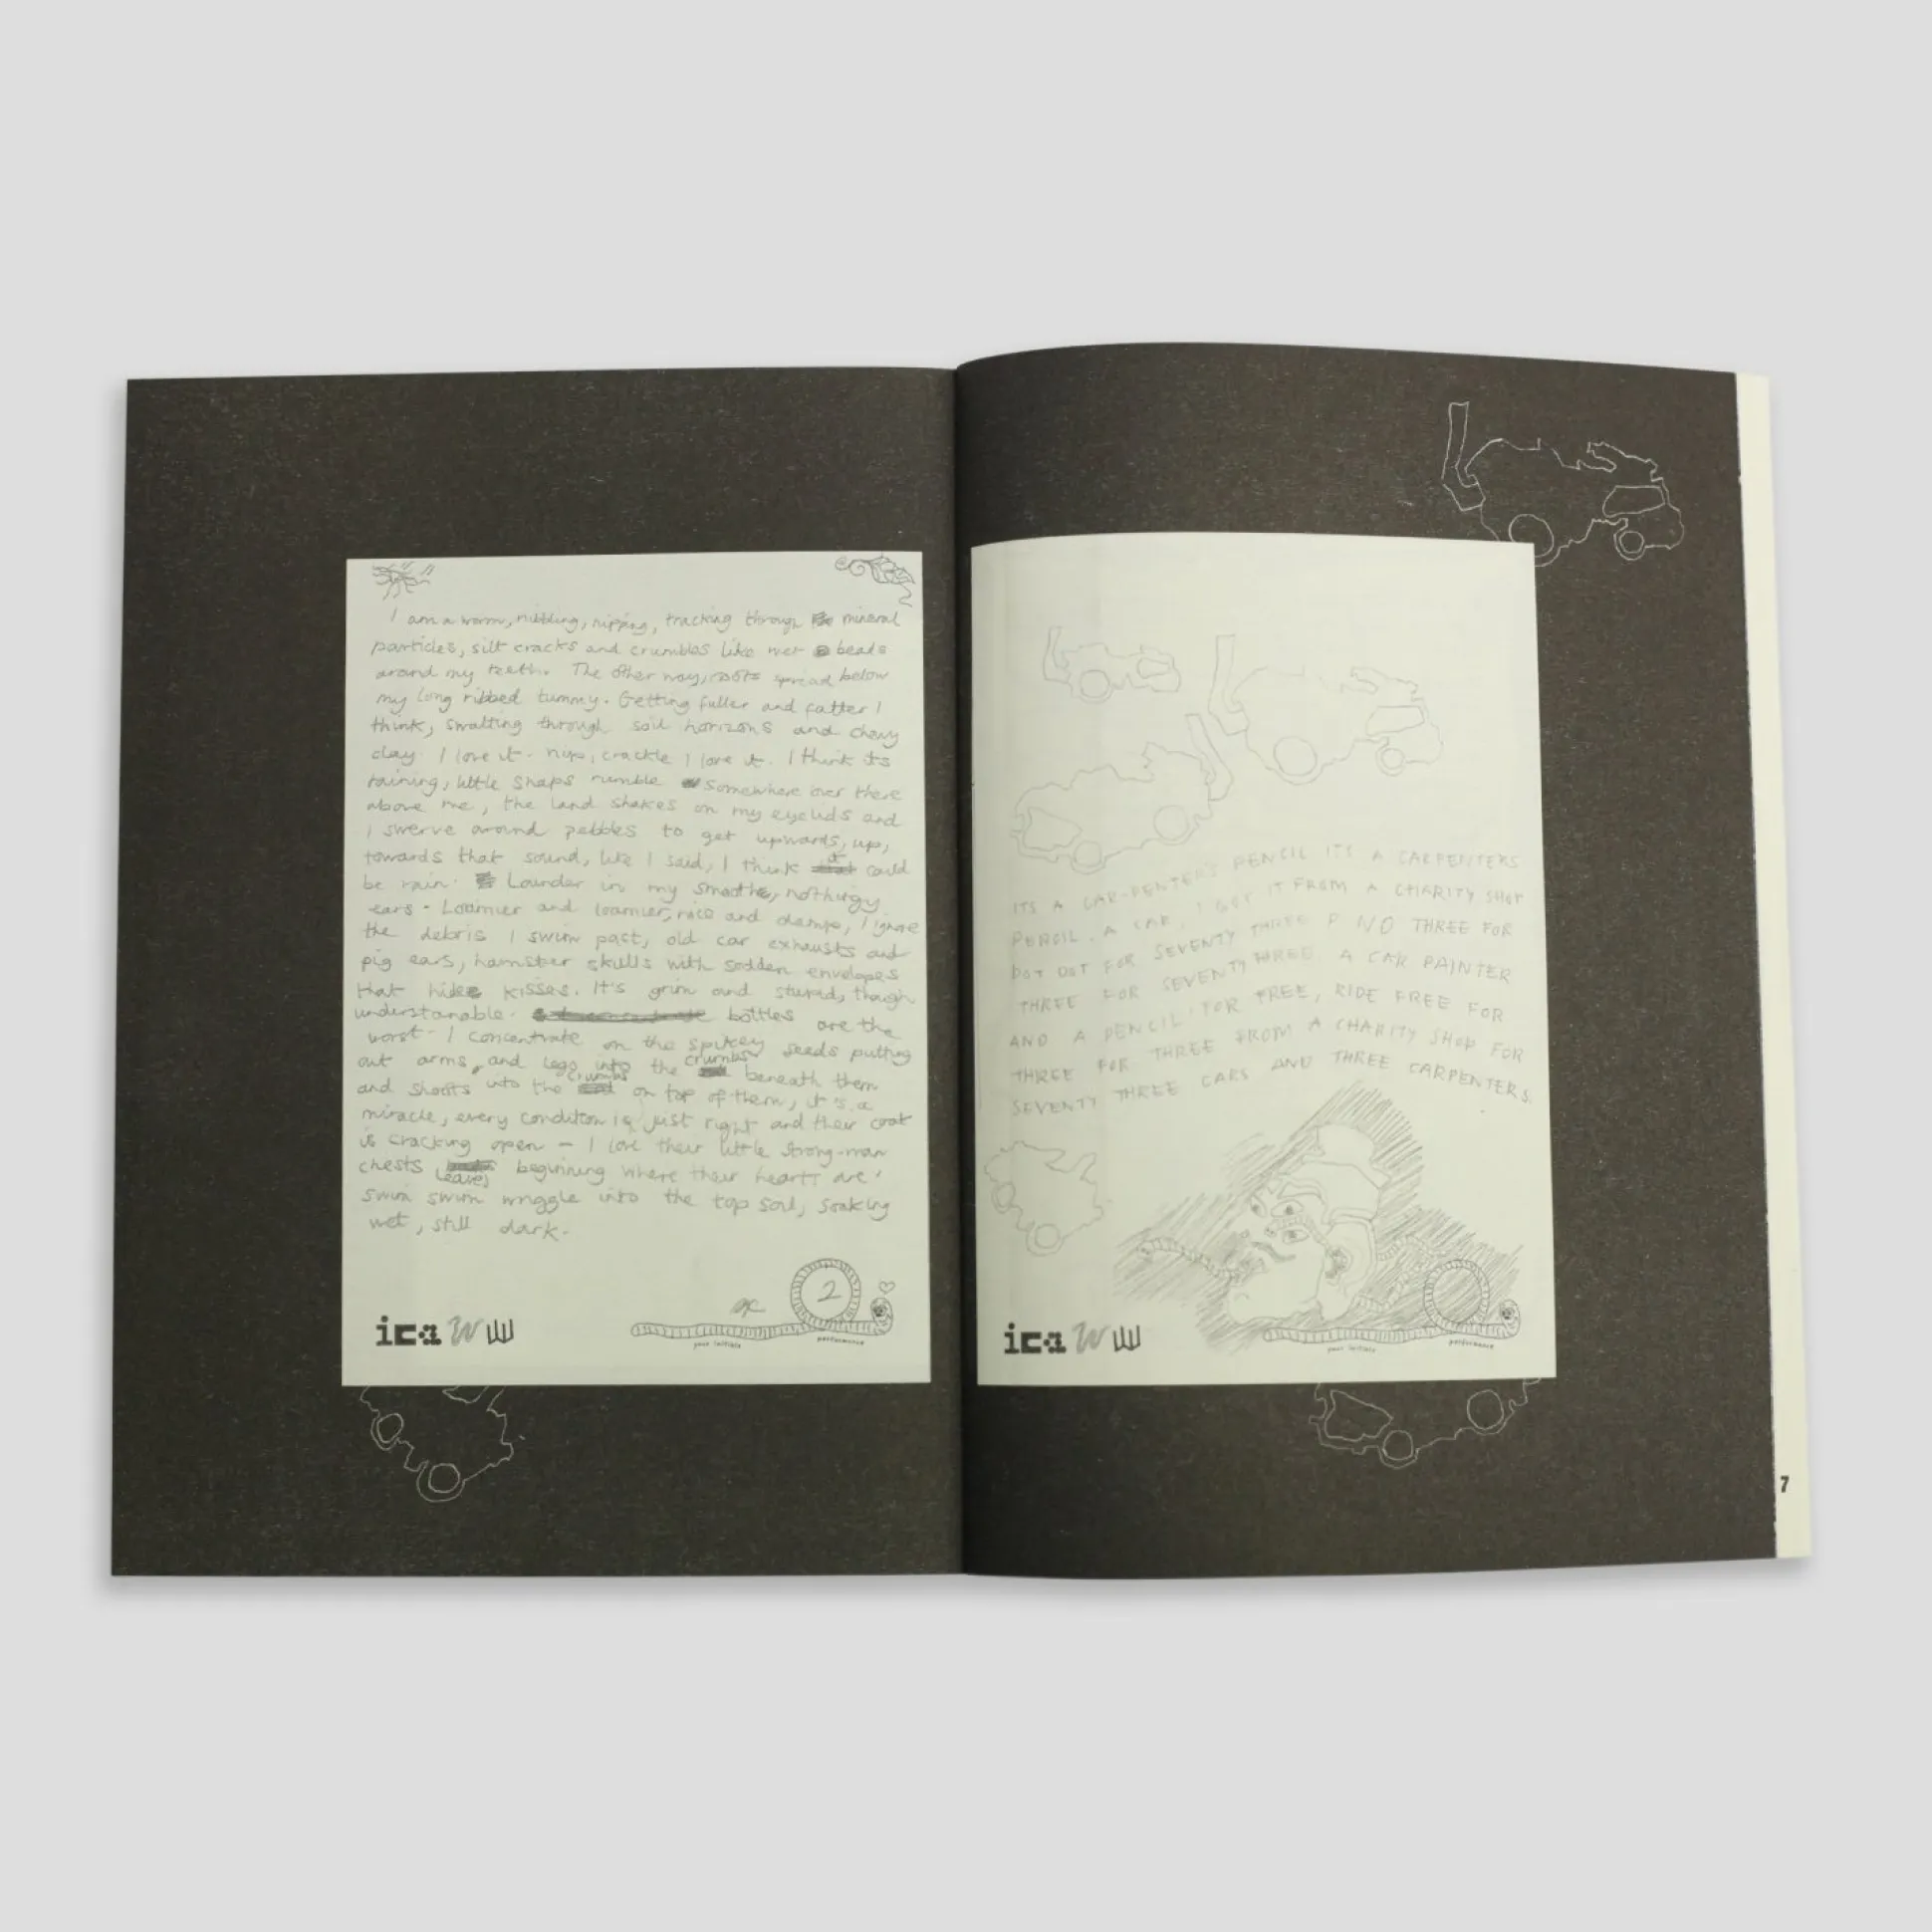 I am a worm, nibbling, nipping, tracking through mineral
particles, silt cracks and crumbles like wet beads
around my teeth. The other way, roots spread below
my long ribbed tummy. Getting fuller and fatter I
think, swalting through soil horizons and chewy
clay I love it. nips, crackle I love it. I think its
raining, little snaps rumble somewhere over there
above me, the land shakes on my eyelids and
I swerve around pebbles to get upwards, up,
towards that sound, like I said, I think it could
be rain. Lounder in my smooth, nothingy
ears. Loamier and loamier, nice and damp, I ignore
the debris I swim past, old car exhausts and
pig ears, hamster skulls with sodden envelopes
that hide kisses. It's grim and stupid, though
understanable. bottles are the
worst. I concentrate on the spikey seeds putting
out arms and legs into the crumbs beneath them
and shoots into the crumbs on top of them, it's a
miracle, every condition is just right and their coat
is cracking open – I love their little strong-man
chests leaves beginning where their hearts are.
swim swim wriggle into the top soil, soaking
wet, still dark.
2
ica W W
your initials performance
ITS A CAR-PENTER'S PENCIL ITS A CARPENTERS
PENCIL. A CAR, I GOT IT FROM A CHARITY SHOP
DOT DOT FOR SEVENTY THREE P NO THREE FOR
THREE FOR SEVENTY THREE, A CAR PAINTER
AND A PENCIL FOR FREE, RIDE FREE FOR
THREE FOR THREE FROM A CHARITY SHOP FOR
SEVENTY THREE CARS AND THREE CARPENTERS.
ica W W
your initials performance
7